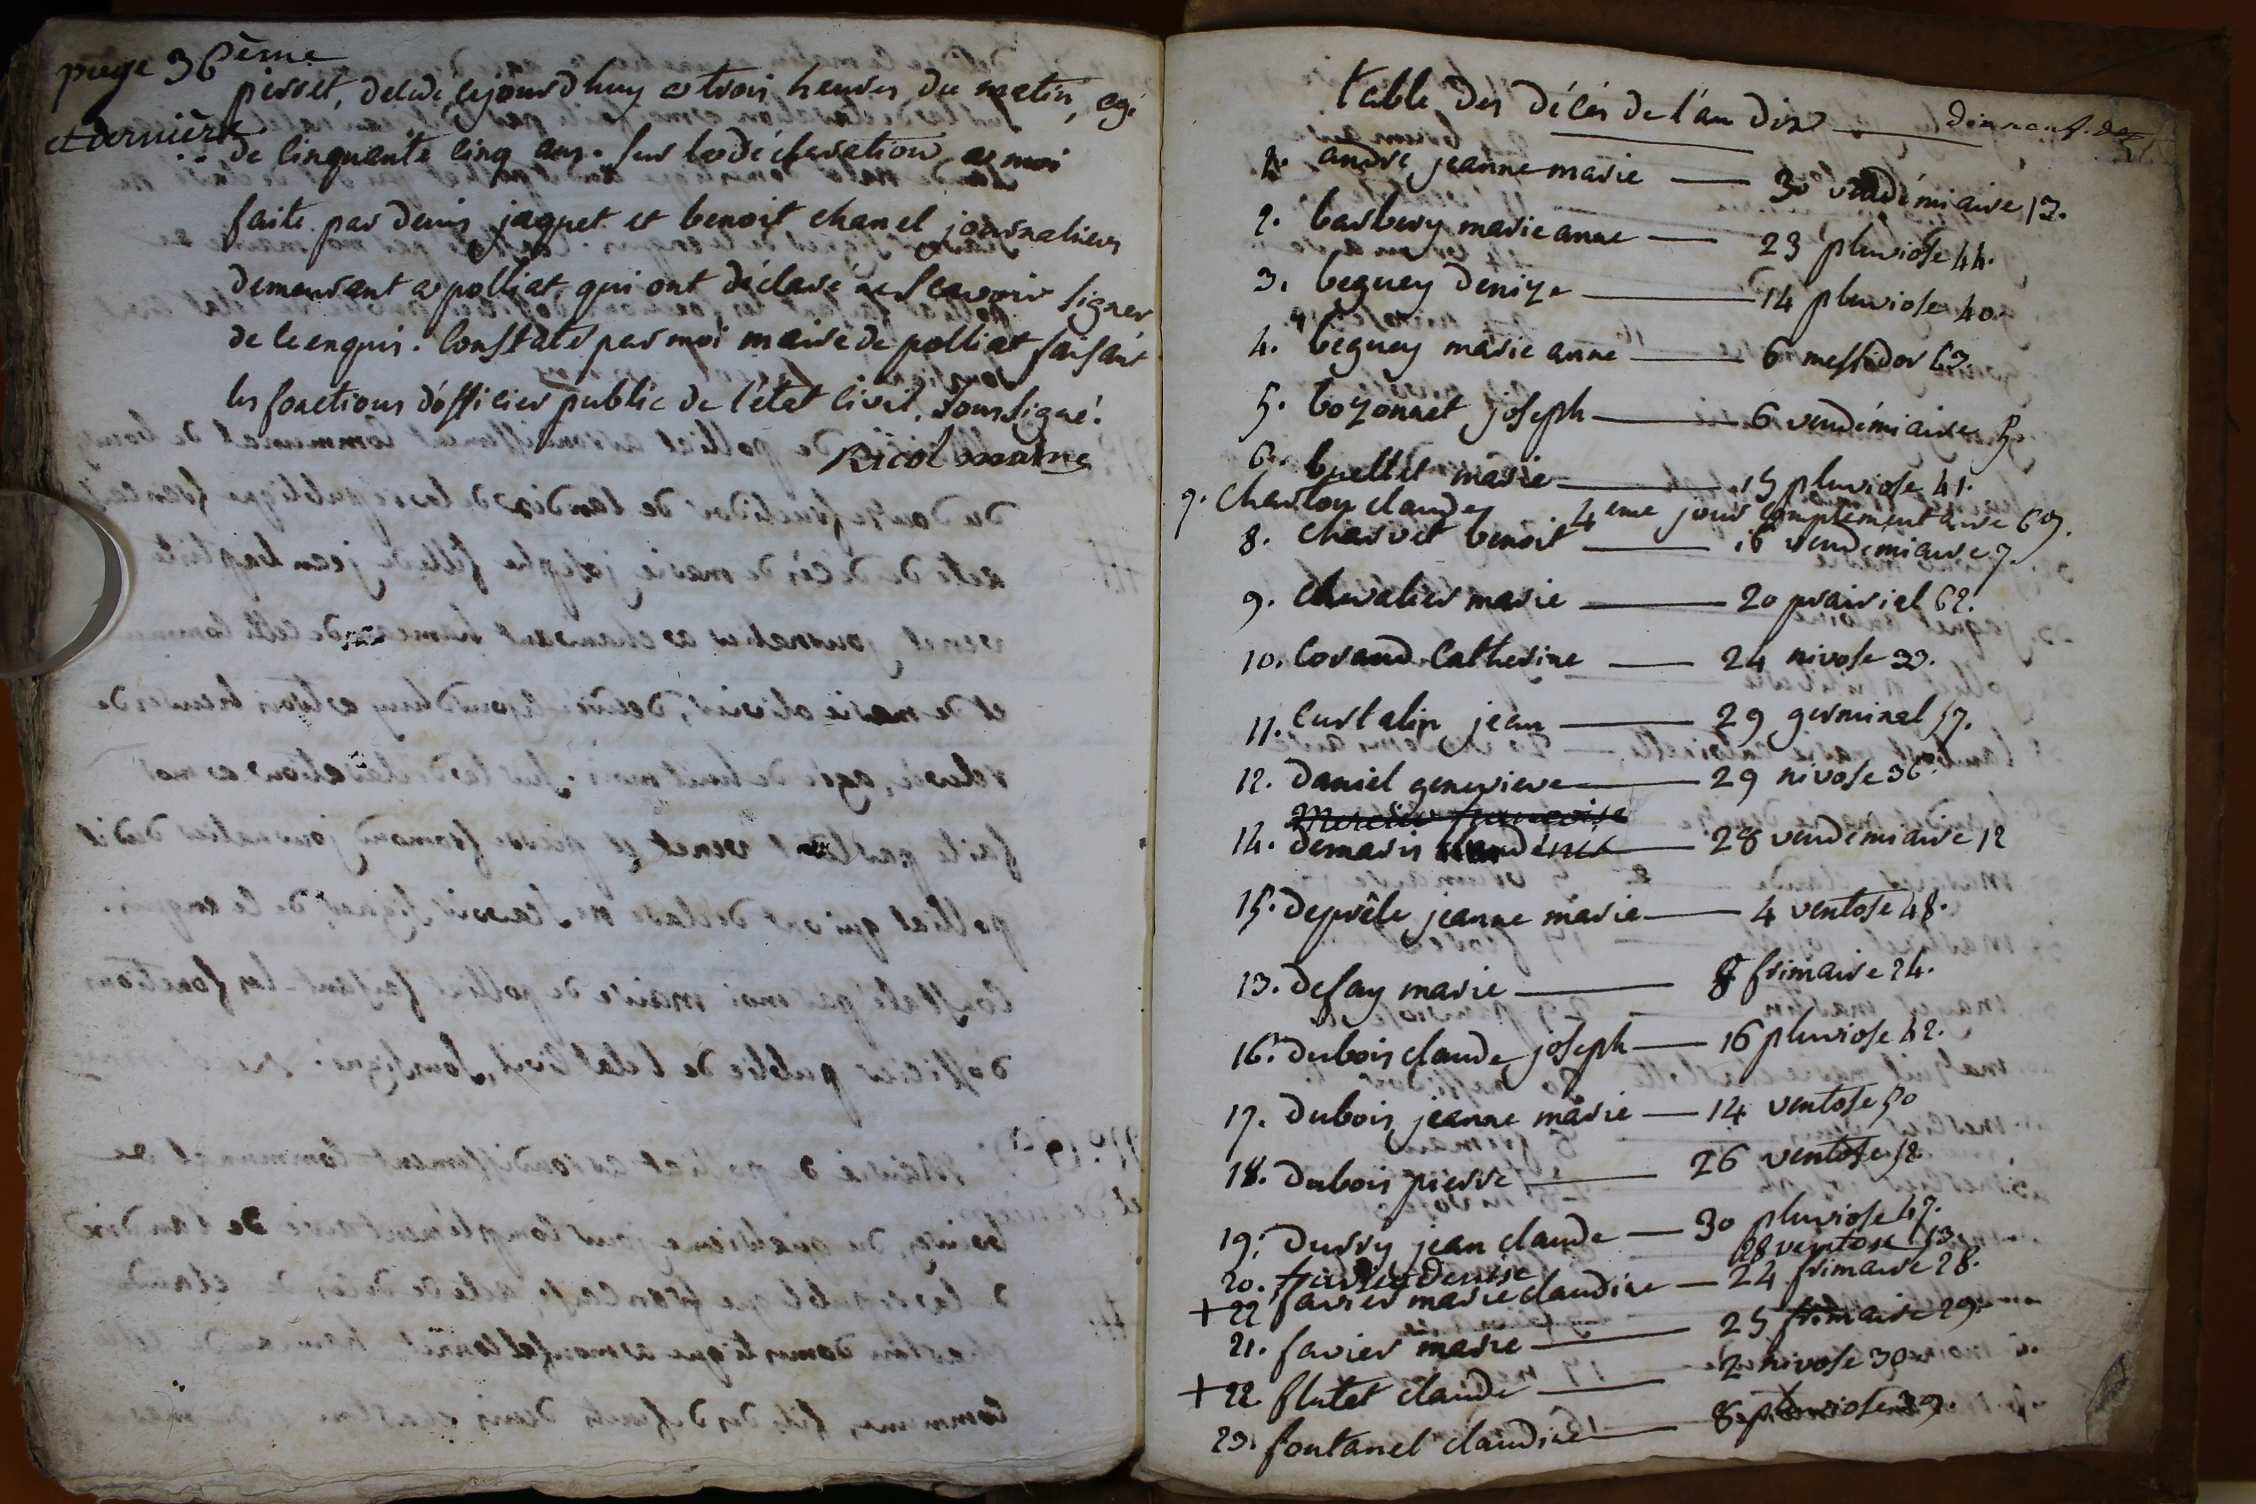 page 36ème
et dernière
perret, décédé cejourd'huy a trois heures du matin, agé
de cinquante cinq ans. sur la déclaration a moi
faite par denis jaquet et benoit chanel journaliers
demeurant a polliat qui ont déclaré ne scavoir signer
de ce enquis. Constaté par moi maire de polliat faisant
les fonctions d'officier public de l'état civil, soussigné.
Ricol maire
table des décés de l'an dix
1. andré jeanne marie — 30 vendémiaire 13.
2. barbery marie anne — 23 pluviose 44.
3. beguey denize — 14 pluviose 40.
4. beguey marie anne — 6 messidor 63.
5. bozonnet joseph — 6 vendémiaire 5.
6. buellet marie — 15 pluviose 41.
7. Charlon claude 4eme jour complementaire 69.
8. charvet benoit — 16 vendemiaire 7.
9. chevalier marie — 20 prairial 62.
10. Corand Catherine — 24 nivose 33.
11. curtalin jean — 29 germinal 57.
12. daniel genevieve — 29 nivose 36.
Mercier francoise
14. demaris — 28 vendemiaire 12
15. deprêle jeanne marie — 4 ventose 48.
13. defay marie — 8 frimaire 24.
16. dubois claude joseph — 16 pluviose 42.
17. dubois jeanne marie — 14 ventose 50
18. dubois pierre — 26 ventose 52
19. durry jean claude — 30 pluviose 47.
20. denise 28 ventose 53.
+ 22 favier marie claudine — 24 frimaire 28.
21. favier marie — 25 frimaire 29.
+ 22 flutet claude — 2 nivose 30
23. fontanel claudine — 8 pluviose 39.